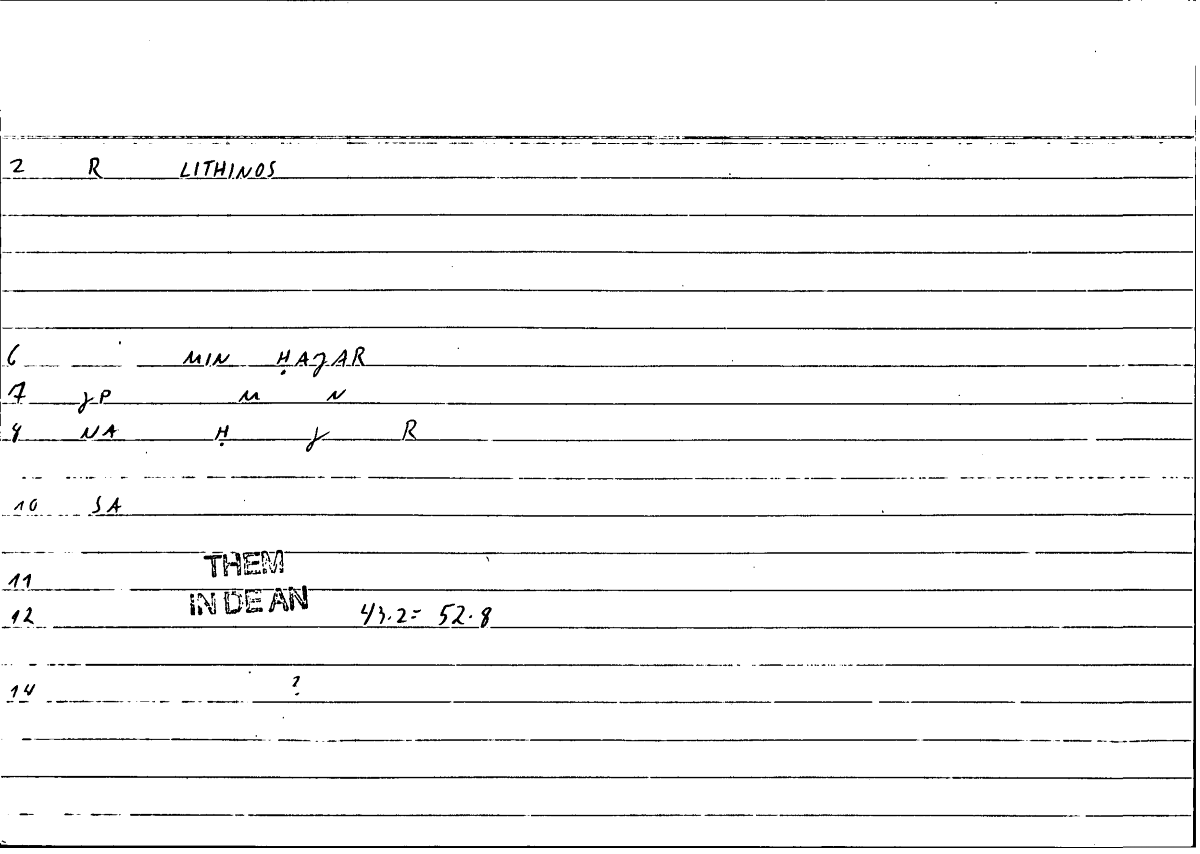 2 R LITHINOS
6 MIN ḤAJAR
7 JP M N
8 NA Ḥ J R
10 SA
11 THEM
12 IN DE AN 43.2= 52.8
14 ?